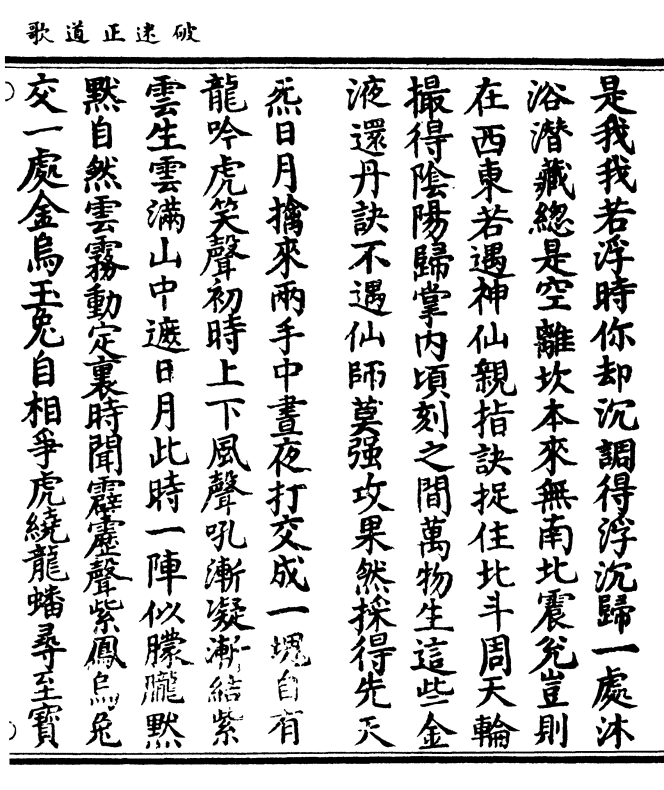 破迷正道歌
是我我若浮時你却沉調得浮沉歸一處沐
浴潛藏緫是空離坎本來無南北震兊豈則
在西東若遇神仙親指訣捉住北斗周天輪
撮得陰陽歸掌內頃刻之間萬物生這些金
液還丹訣不遇仙師莫强攻果然採得先天
炁日月擒來兩手中晝夜打交成一塊自有
龍吟虎笑聲初時上下風聲吼漸凝漸結紫
雲生雲滿山中遮日月此時一陣似朦朧黙
黙自然雲霧動定裏時聞霹靂聲紫鳳烏兔
交一處金烏玉兔自相爭虎繞龍蟠尋至寶